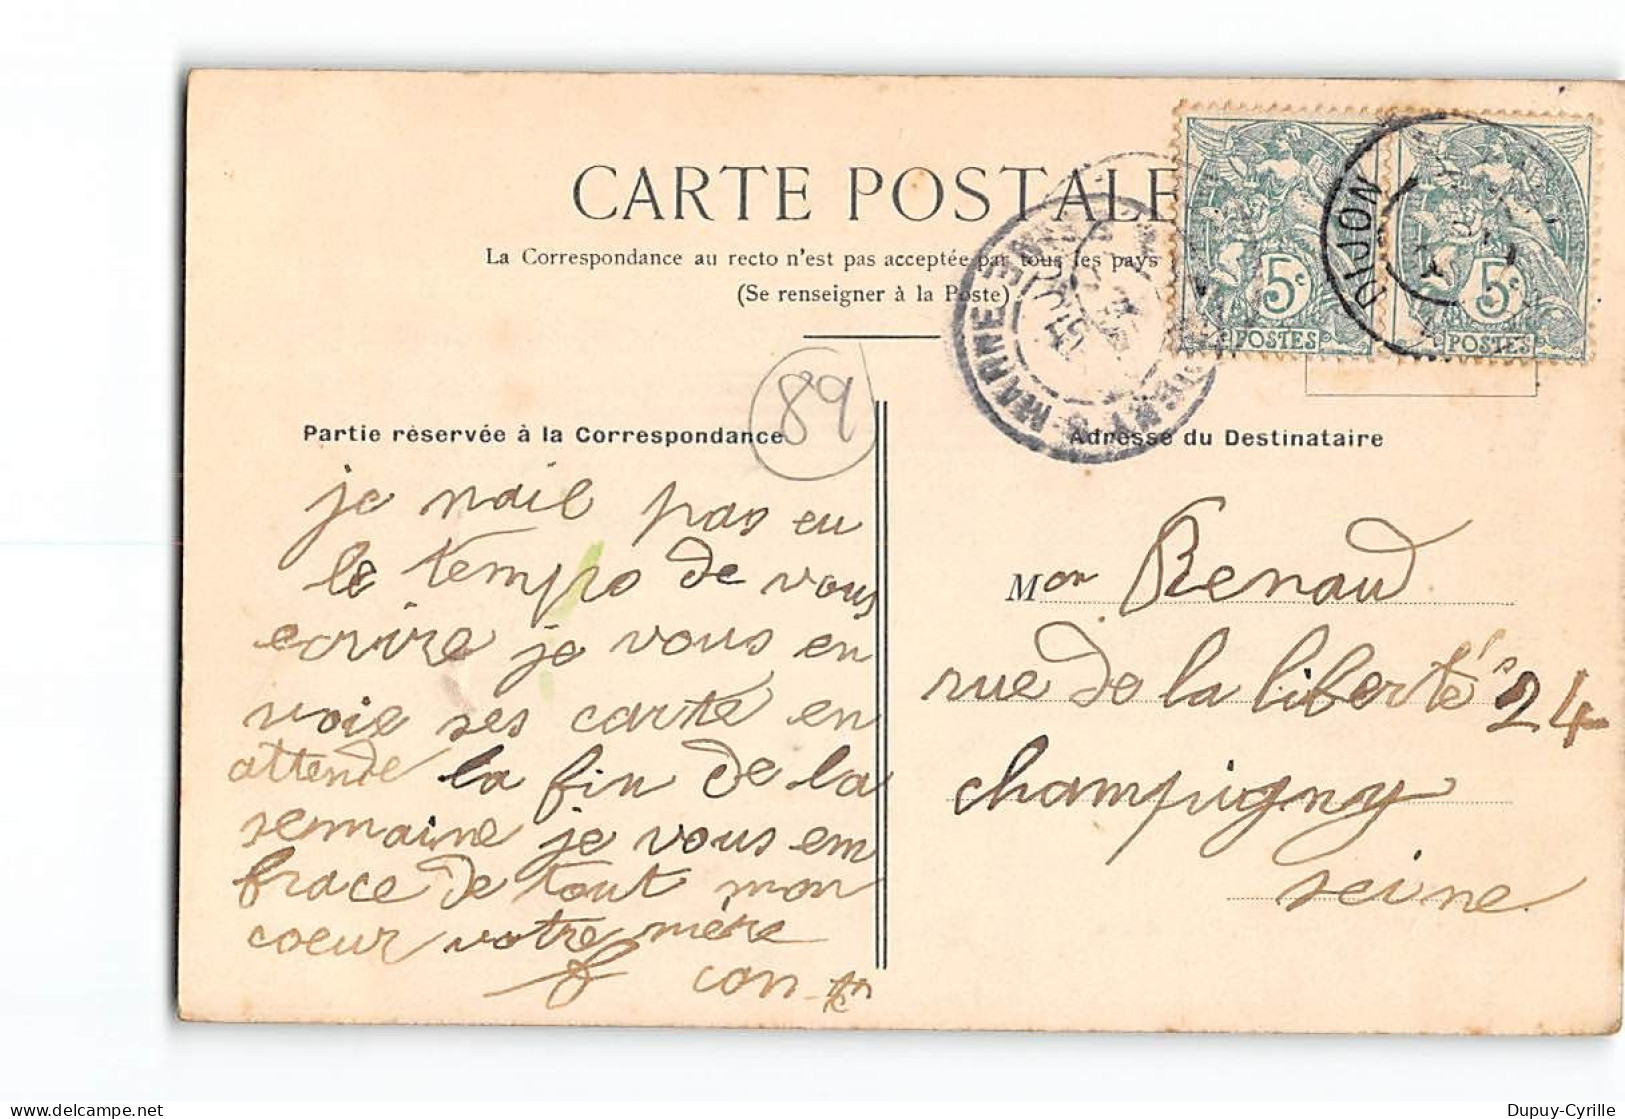 CARTE POSTALE
La Correspondance au recto n'est pas acceptée par tous les pays
(Se renseigner à la Poste)
5c
POSTES
5c
POSTES
DIJON
MARNE
89
Partie réservée à la Correspondance
je naie pas eu
le temps de vous
ecrire je vous en
voie ses carte en
attende la fin de la
semaine je vous em
brace de tout mon
coeur votre mère
Adresse du Destinataire
Mon Renaud
rue de la liberté 24
champigny
seine
Dupuy-Cyrille